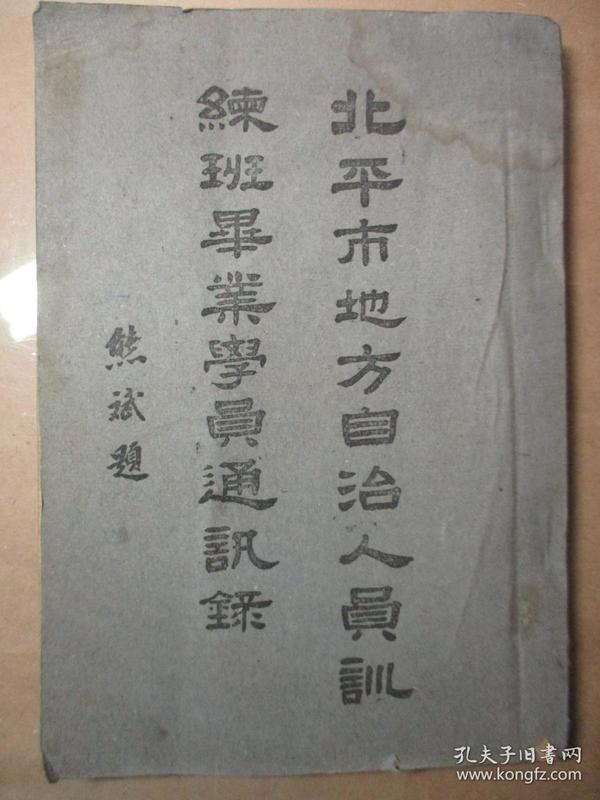 北平市地方自治人員訓
練班畢業學員通訊錄
熊斌題
孔夫子旧書网
www.kongfz.com